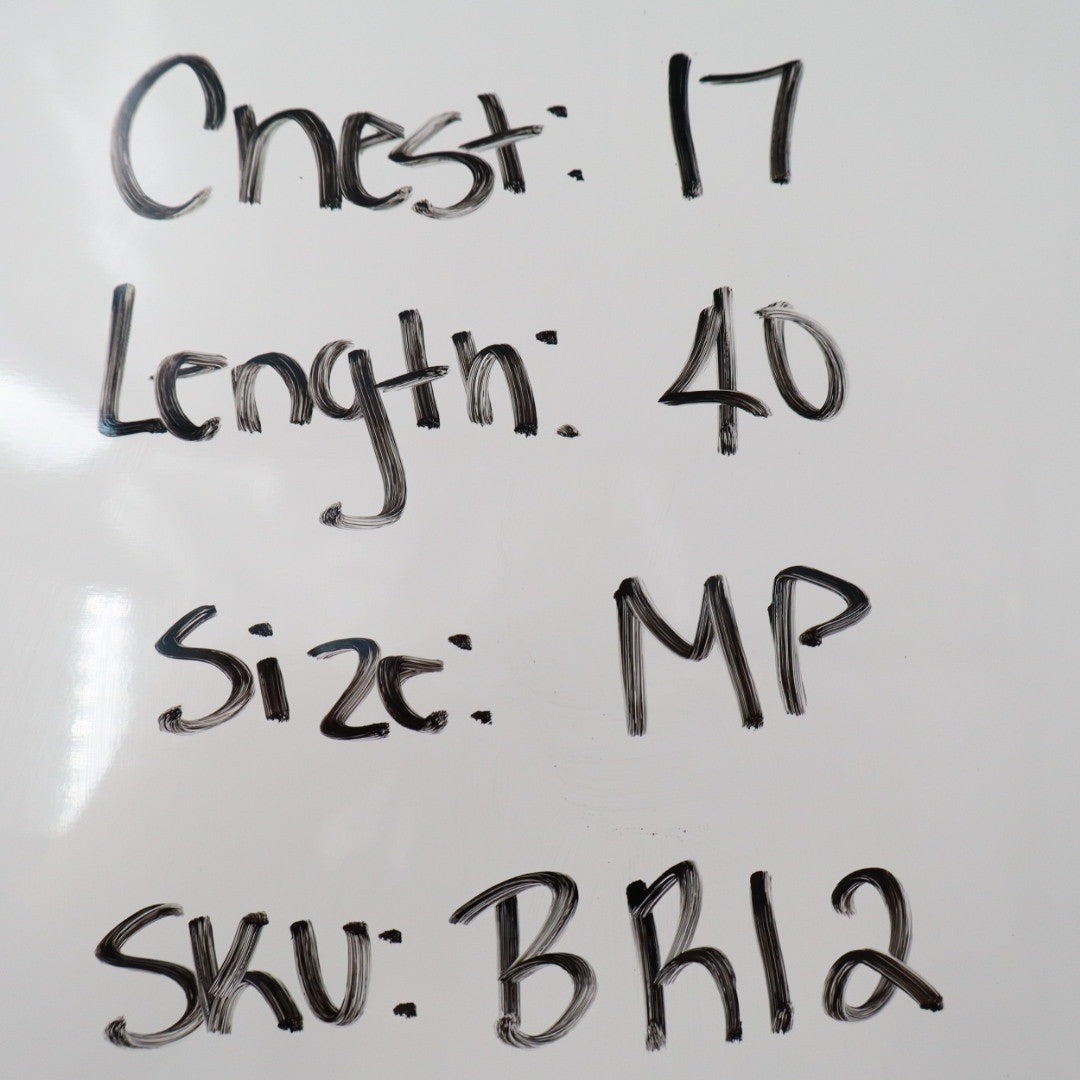 Chest: 17
Length: 40
Size: MP
SKU: BR12